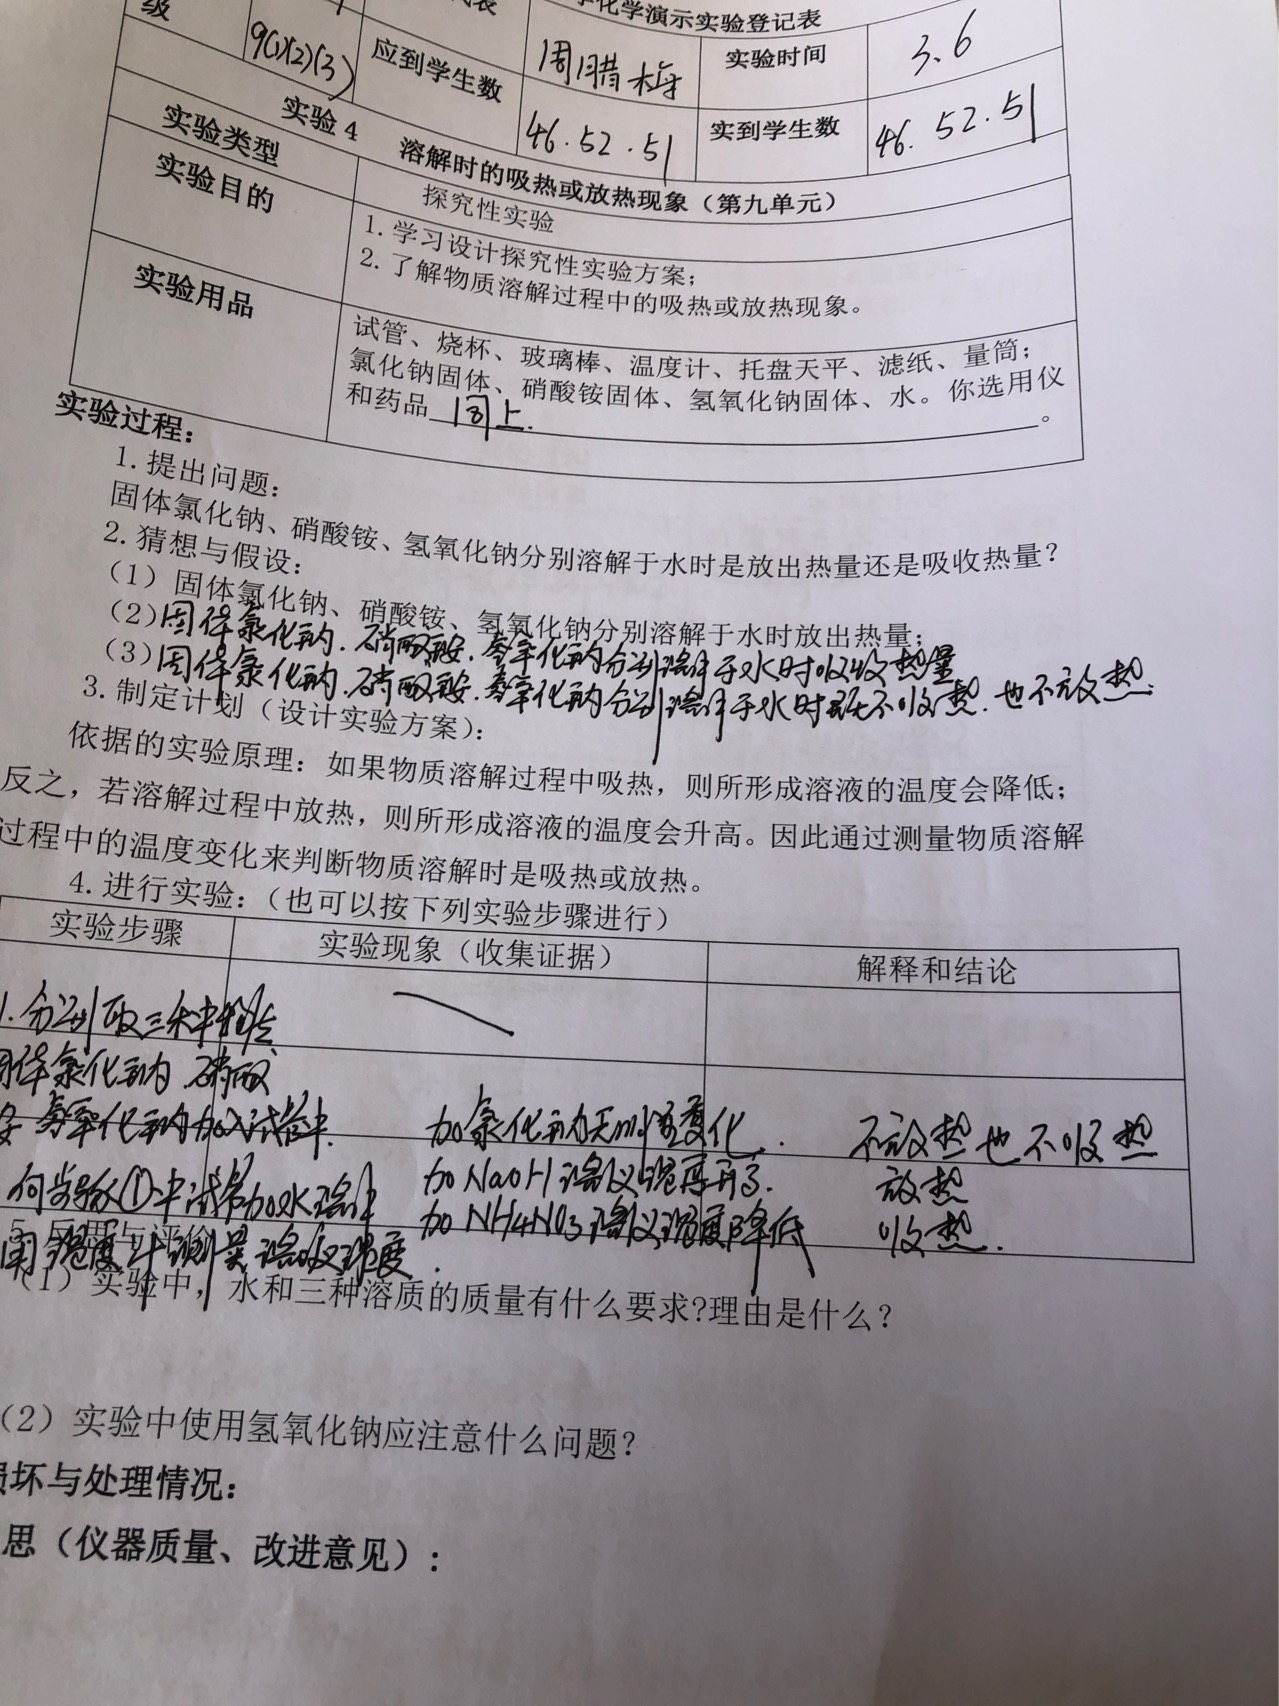 学化学演示实验登记表
级 9(1)(2)(3) 应到学生数 周腊梅 实验时间 3.6
46.52.51 实到学生数 46.52.51
实验4 溶解时的吸热或放热现象（第九单元）
实验类型 探究性实验
实验目的 1.学习设计探究性实验方案；
2.了解物质溶解过程中的吸热或放热现象。
实验用品 试管、烧杯、玻璃棒、温度计、托盘天平、滤纸、量筒；
氯化钠固体、硝酸铵固体、氢氧化钠固体、水。你选用仪
和药品 同上. 。
实验过程：
1.提出问题：
固体氯化钠、硝酸铵、氢氧化钠分别溶解于水时是放出热量还是吸收热量？
2.猜想与假设：
（1）固体氯化钠、硝酸铵、氢氧化钠分别溶解于水时放出热量；
（2）固体氯化钠.硝酸铵.氢氧化钠分别溶解于水时吸收热量
（3）固体氯化钠.硝酸铵.氢氧化钠分别溶解于水时既不吸热.也不放热.
3.制定计划（设计实验方案）：
依据的实验原理：如果物质溶解过程中吸热，则所形成溶液的温度会降低；
反之，若溶解过程中放热，则所形成溶液的温度会升高。因此通过测量物质溶解
过程中的温度变化来判断物质溶解时是吸热或放热。
4.进行实验：（也可以按下列实验步骤进行）
实验步骤 实验现象（收集证据） 解释和结论
1.分别取三
固体氯化钠.硝酸
安 氢氧化钠加入试管中. 加氯化钠无明显变化. 不放热也不吸热
向步骤①中试管加水溶解 加NaOH溶液温度升高. 放热
用温度计测量溶液温度. 加NH4NO3溶液温度降低 吸热.
（1）实验中，水和三种溶质的质量有什么要求?理由是什么？
（2）实验中使用氢氧化钠应注意什么问题？
损坏与处理情况：
思（仪器质量、改进意见）：